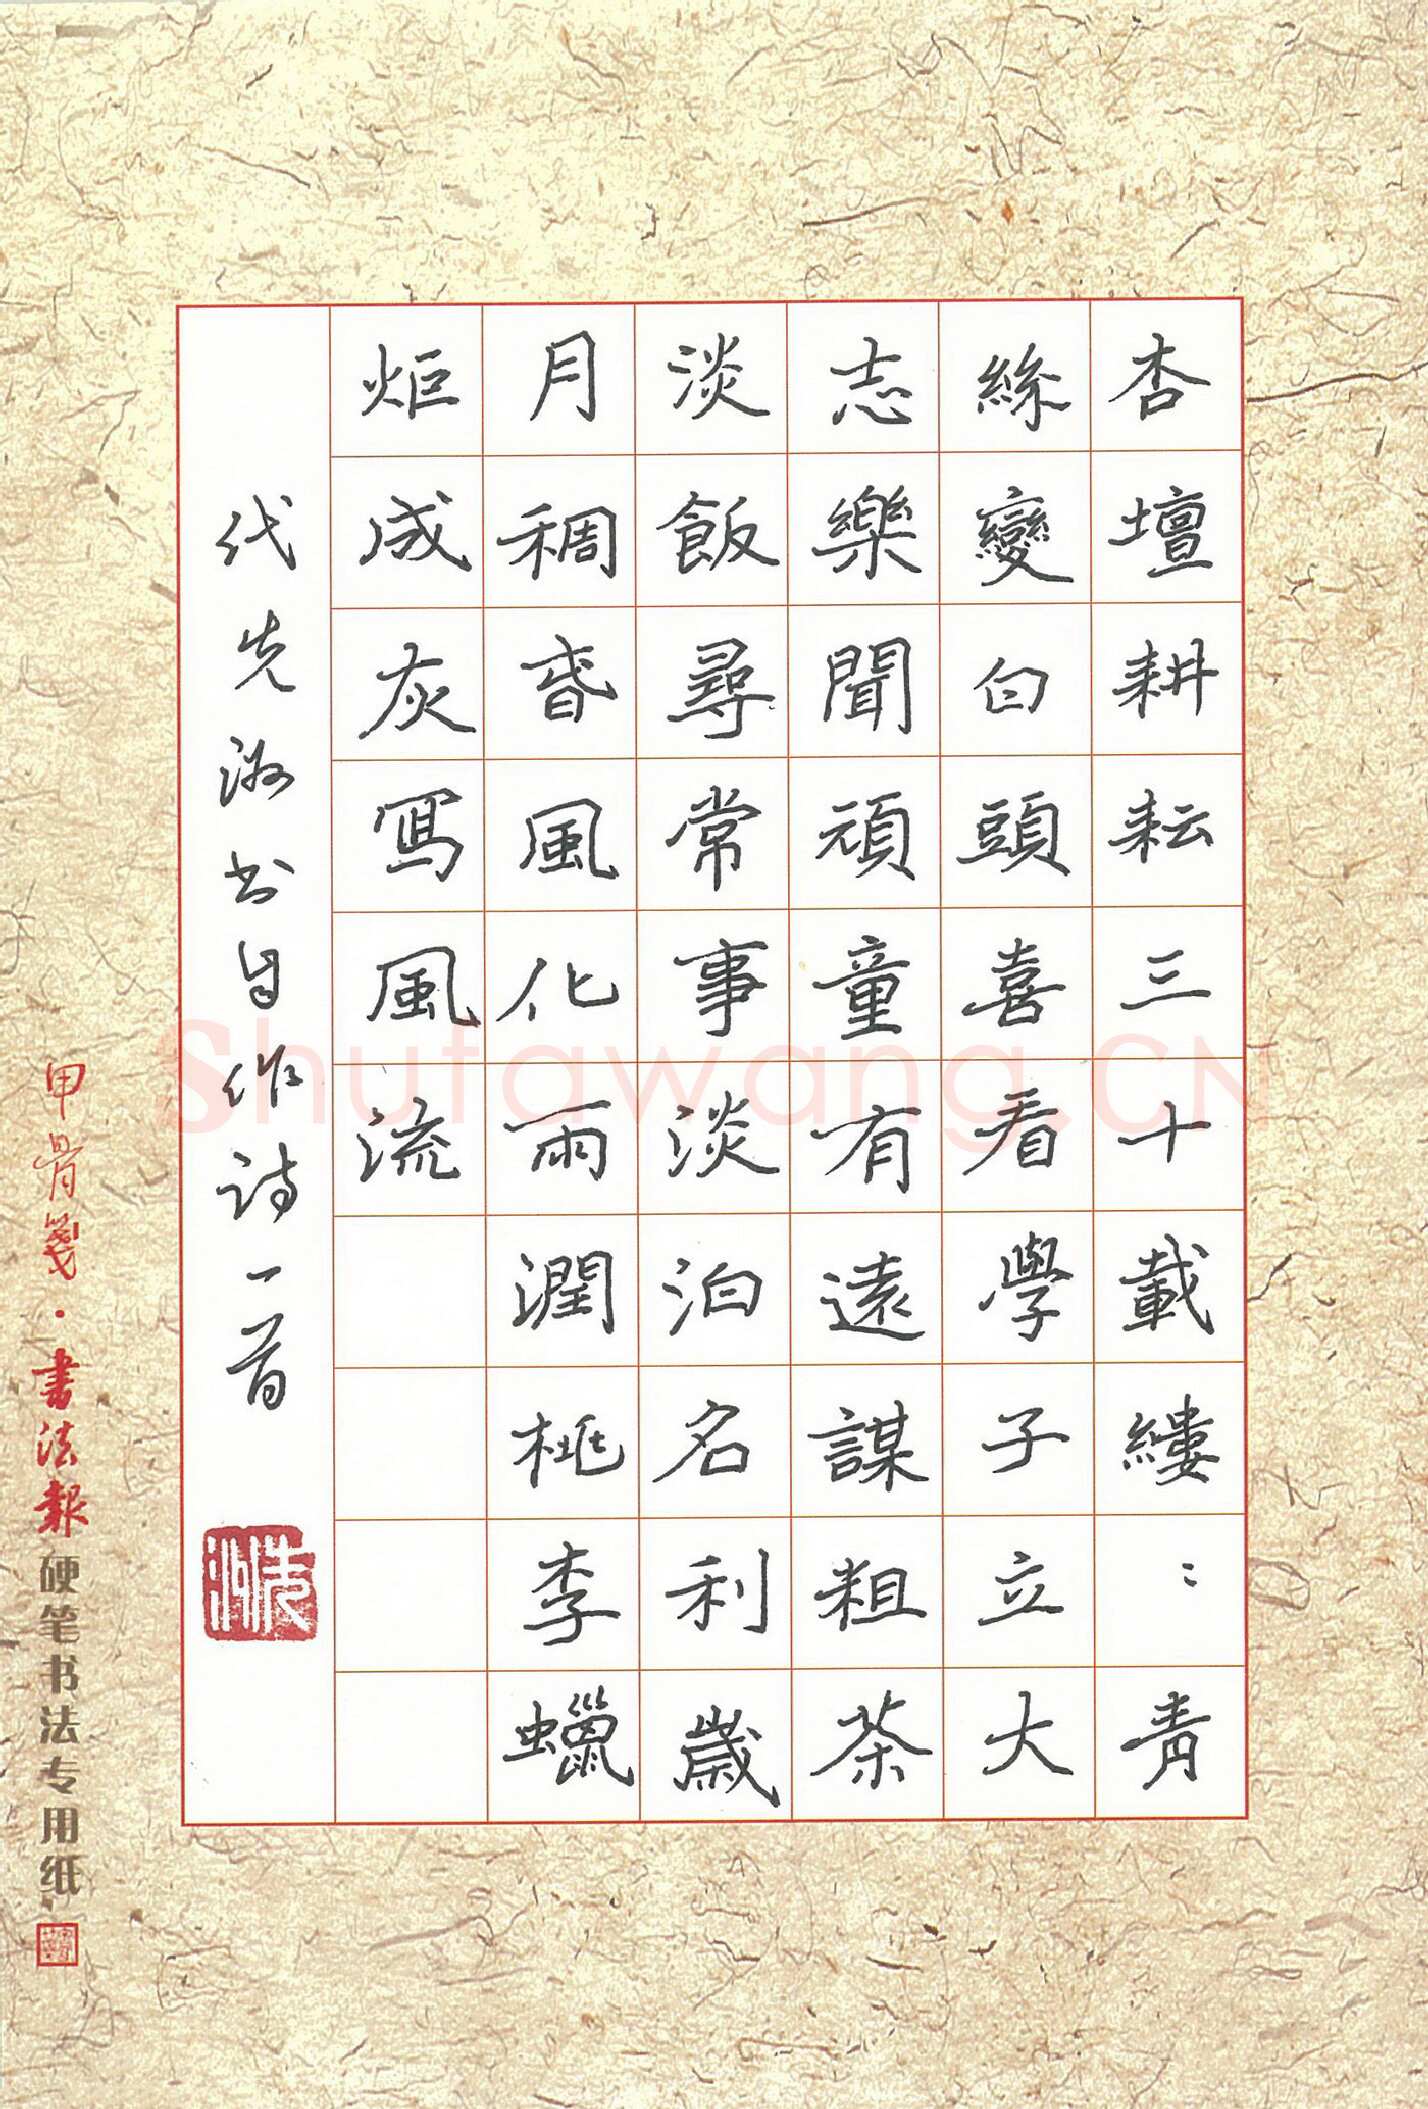 杏壇耕耘三十載縷〻青
絲變白頭喜看學子立大
志樂聞頑童有遠謀粗茶
淡飯尋常事淡泊名利歲
月稠春風化雨潤桃李蠟
炬成灰寫風流
代先洲书自作诗一首
先洲
甲骨箋·書法報硬笔书法专用纸
Shufawang.CN